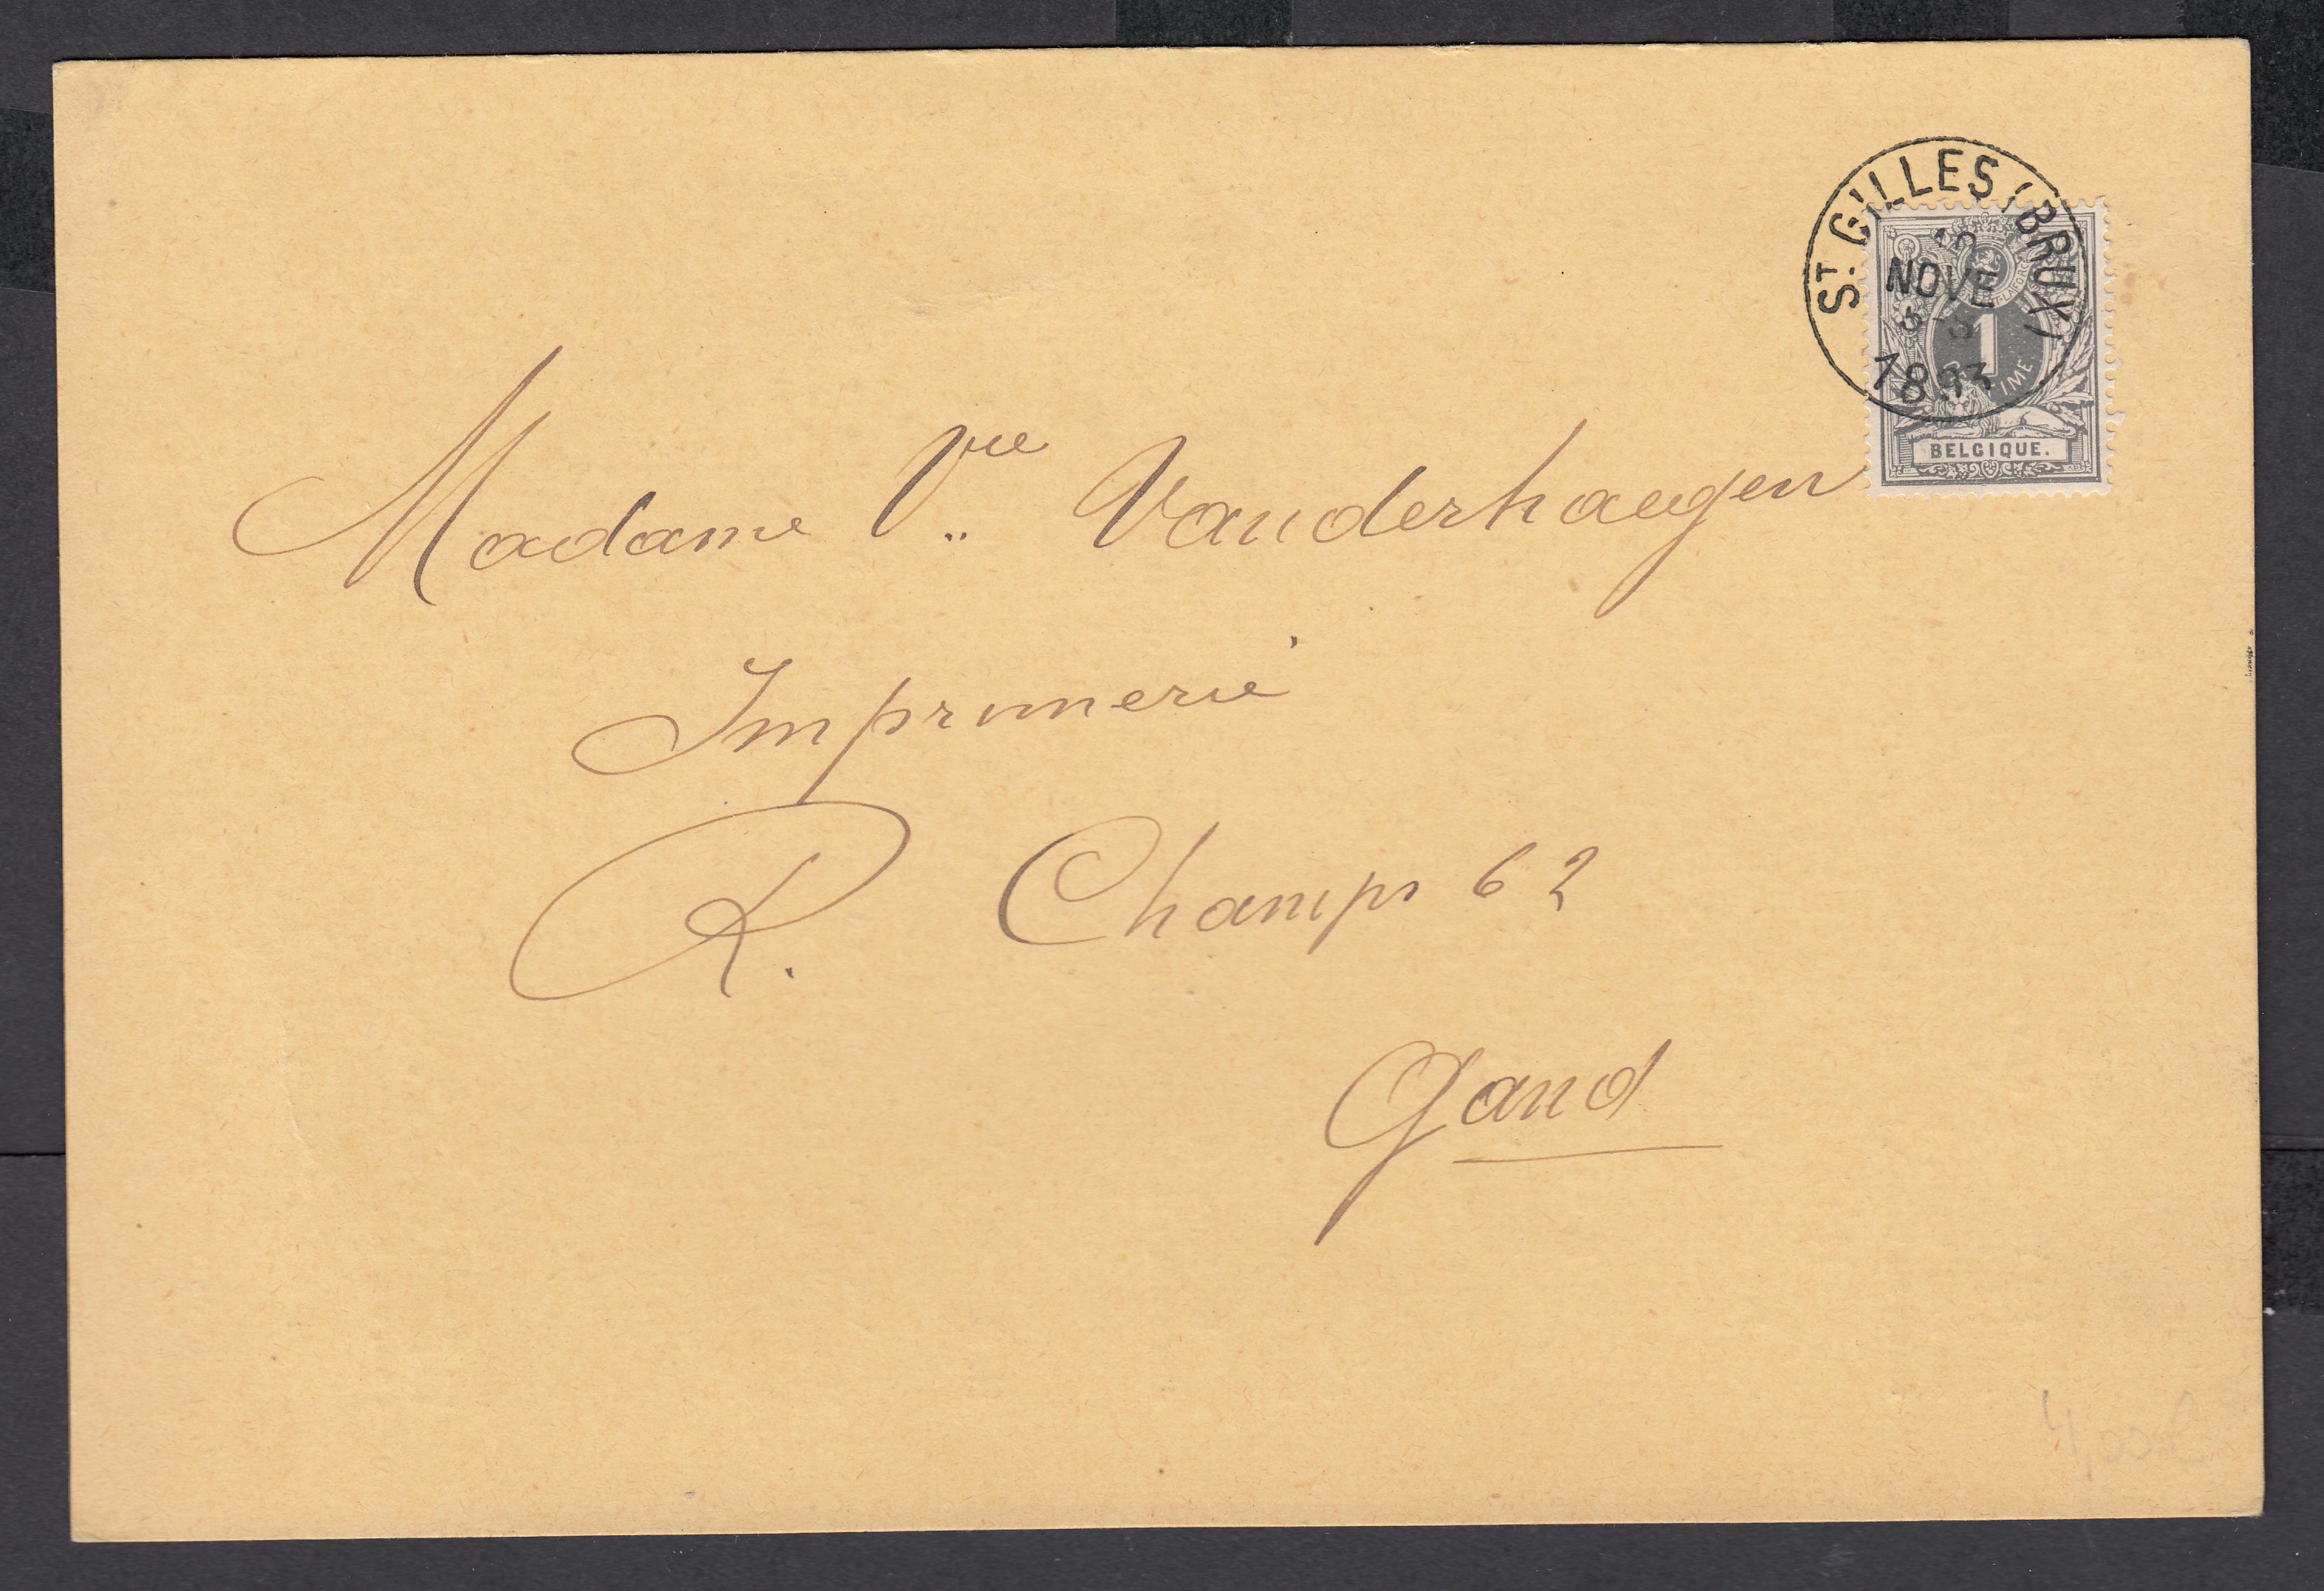 ST. GILLES (BRUX)
NOVE
1893
1
IME
BELGIQUE.
Madame Vve Vanderhaegen
Imprimerie
R. Champs 62
Gand